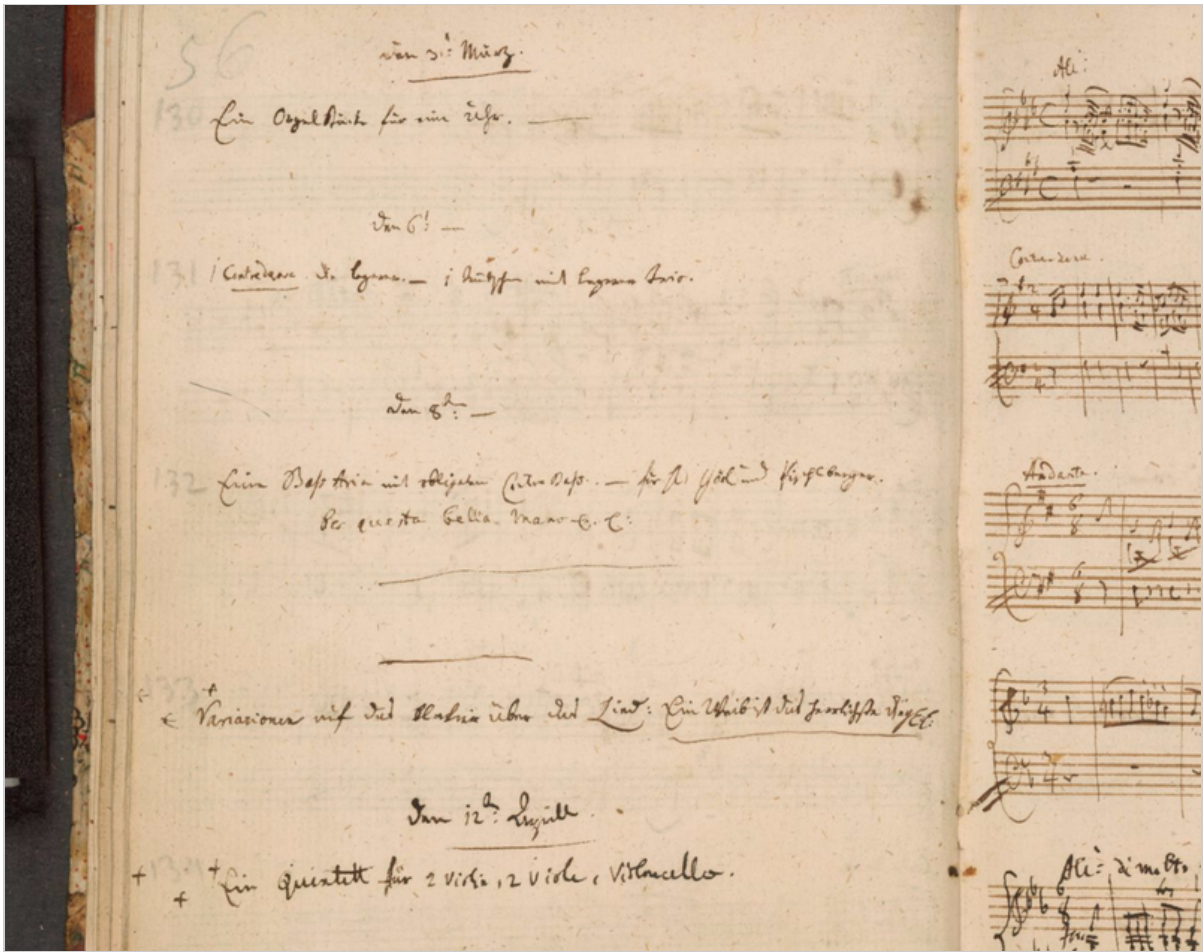 56
den 3:t März.
Allº:
130
Ein Orgel Stücke für eine Uhr. —
den 6:t —
131
1 Contredanse. die leyerer. — 1 teutscher mit leyerer trio.
Contredanse.
den 8:t —
132
Eine Bass Aria mit obligaten Contre Bass. — für H: Görl und Pischlberger.
Per questa bella mano Etc:
Andante.
133
Variazionen auf das Klavier über das Lied: Ein Weib ist das herrlichste ding Etc:
den 12:t April.
134
Ein Quintett für 2 Violin, 2 Viole, e Violoncello.
Allº: di molto